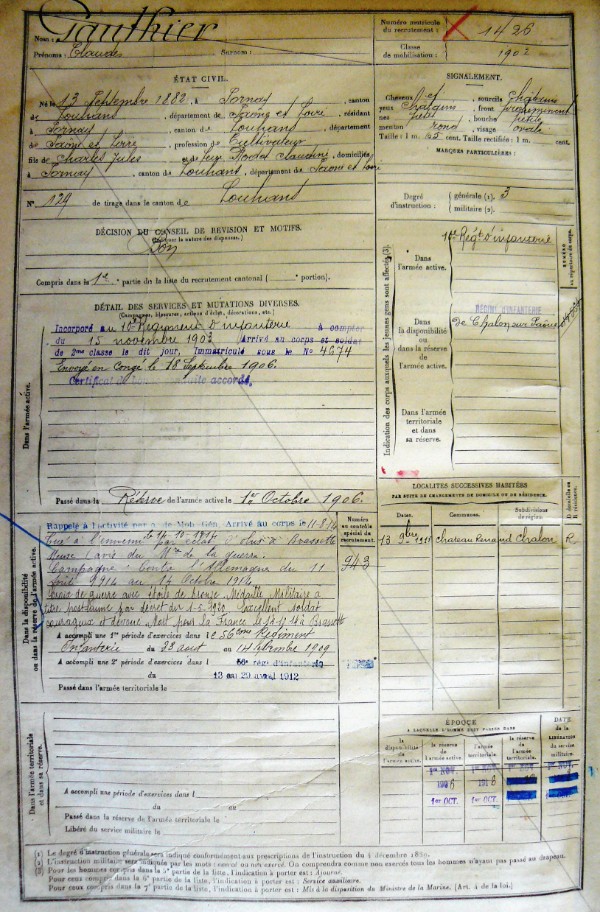 Nom : Gauthier
Prénoms : Claude Surnom :
Numéro matricule
du recrutement : 1426
Classe
de mobilisation : 1902
ÉTAT CIVIL.
Né le 13 Septembre 1882, à Sornay, canton
de Louhans, département de Saône et Loire, résidant
à Sornay, canton de Louhans, département
de Saône et Loire, profession de Cultivateur
fils de Charles Jules et de feu Claudine, domiciliés
à Sornay, canton de Louhans, département de Saône et Loire
N° 129 de tirage dans le canton de Louhans
SIGNALEMENT.
Cheveux et sourcils châtains
yeux châtains, front proéminent
nez petit, bouche petite
menton rond, visage ovale
Taille : 1 m. 65 cent. Taille rectifiée : 1 m. cent.
MARQUES PARTICULIÈRES :
Degré
d'instruction :
générale (1). 3
militaire (2).
DÉCISION DU CONSEIL DE REVISION ET MOTIFS.
Bon
Compris dans la 1re partie de la liste du recrutement cantonal ( portion).
DÉTAIL DES SERVICES ET MUTATIONS DIVERSES.
(Campagnes, blessures, actions d'éclat, décorations, etc.)
Dans l'armée active.
Incorporé au Régiment d'infanterie à compter
du 15 novembre 1903 Arrivé au corps et soldat
de 2me classe le dit jour, Immatriculé sous le N° 4674
Envoyé en congé le 18 Septembre 1906.
Certificat de bonne conduite accordé.
Passé dans la Réserve de l'armée active le 1er Octobre 1906.
Indication des corps auxquels les jeunes gens sont affectés (3).
Dans
l'armée active.
Régt d'infanterie
Dans
la disponibilité
ou dans la réserve
de l'armée active.
RÉGIMENT D'INFANTERIE
de Chalon sur Saône
Dans
l'armée territoriale
et dans
sa réserve.
LOCALITÉS SUCCESSIVES HABITÉES
PAR SUITE DE CHANGEMENTS DE DOMICILE OU DE RÉSIDENCE.
Dates. Communes. Subdivisions
de région. D domicile ou
R résidence.
13 9bre Chateau Renaud Chalon R.
Dans la disponibilité
ou dans la réserve de l'armée active.
Numéro
au contrôle
spécial du
recrutement.
943
Rappelé à l'activité par . de Mob. Gén. Arrivé au corps le 11-8-14
Tué à l'ennemi le 14-10-1914 par éclat d'obus à
Meuse (avis du Mre de la guerre.
Campagne : contre l'Allemagne du 11
Août 1914 au 14 Octobre 1914
Croix de guerre avec étoile de bronze Médaille Militaire à
titre posthume par décret du 1-5-1920 Excellent soldat
courageux et dévoué Mort pour la France le
A accompli une 1re période d'exercices dans le 56ème Régiment
Infanterie du 23 août au 14 Septembre 1909
A accompli une 2e période d'exercices dans le régt d'infanterie
13 au 29 avril 1912
Passé dans l'armée territoriale le
ÉPOQUE
À LAQUELLE L'HOMME DOIT PASSER DANS
la disponibilité
de l'armée active. la réserve
de l'armée active. l'armée
territoriale. la réserve
de l'armée
territoriale.
DATE
DE LA
LIBÉRATION
du service
militaire.
1er NOV. 1er NOV. 1er NOV. 1er NOV.
1906 1916
1er OCT. 1er OCT.
Dans l'armée territoriale
et dans sa réserve.
A accompli une période d'exercices dans l
du au
Passé dans la réserve de l'armée territoriale le
Libéré du service militaire le
(1) Le degré d'instruction générale sera indiqué conformément aux prescriptions de l'instruction du 4 décembre 1889.
(2) L'instruction militaire sera indiquée par les mots : exercé ou non exercé. On comprendra comme non exercés tous les hommes n'ayant pas passé au drapeau.
(3) Pour les hommes compris dans la 5e partie de la liste, l'indication à porter est : Ajourné.
Pour ceux compris dans la 6e partie de la liste, l'indication à porter est : Service auxiliaire.
Pour ceux compris dans la 7e partie de la liste, l'indication à porter est : Mis à la disposition du Ministre de la Marine. (Art. 4 de la loi.)